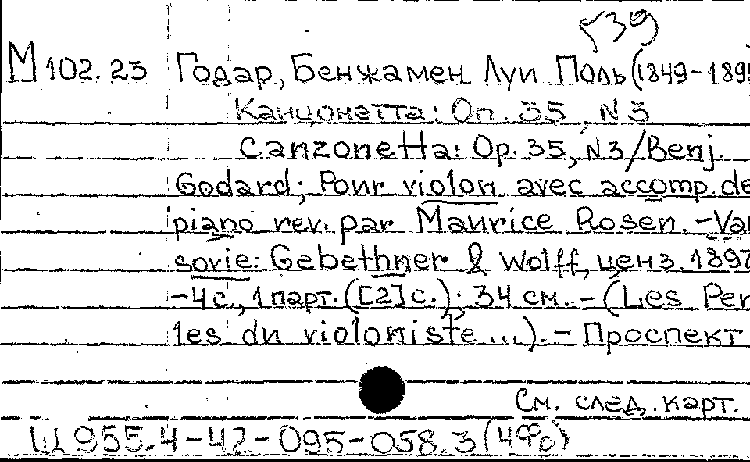 539
М 102.23 Годар, Бенжамен Луи Поль (1849-1895
Канцонетта: Оп. 35, N 3
Canzonetta: Op. 35, N3/Benj.
Godard; Pour violon avec accomp. de
piano rev. par Maurice Rosen. -Var
sovie: Gebethner & Wolff, ценз. 1897
-4с., 1 парт. ([2] с.); 34 см. - (Les Per
les du violoniste...). - Проспект
См. след. карт.
Ц 955.4-42-095-058.3 (4Фо)